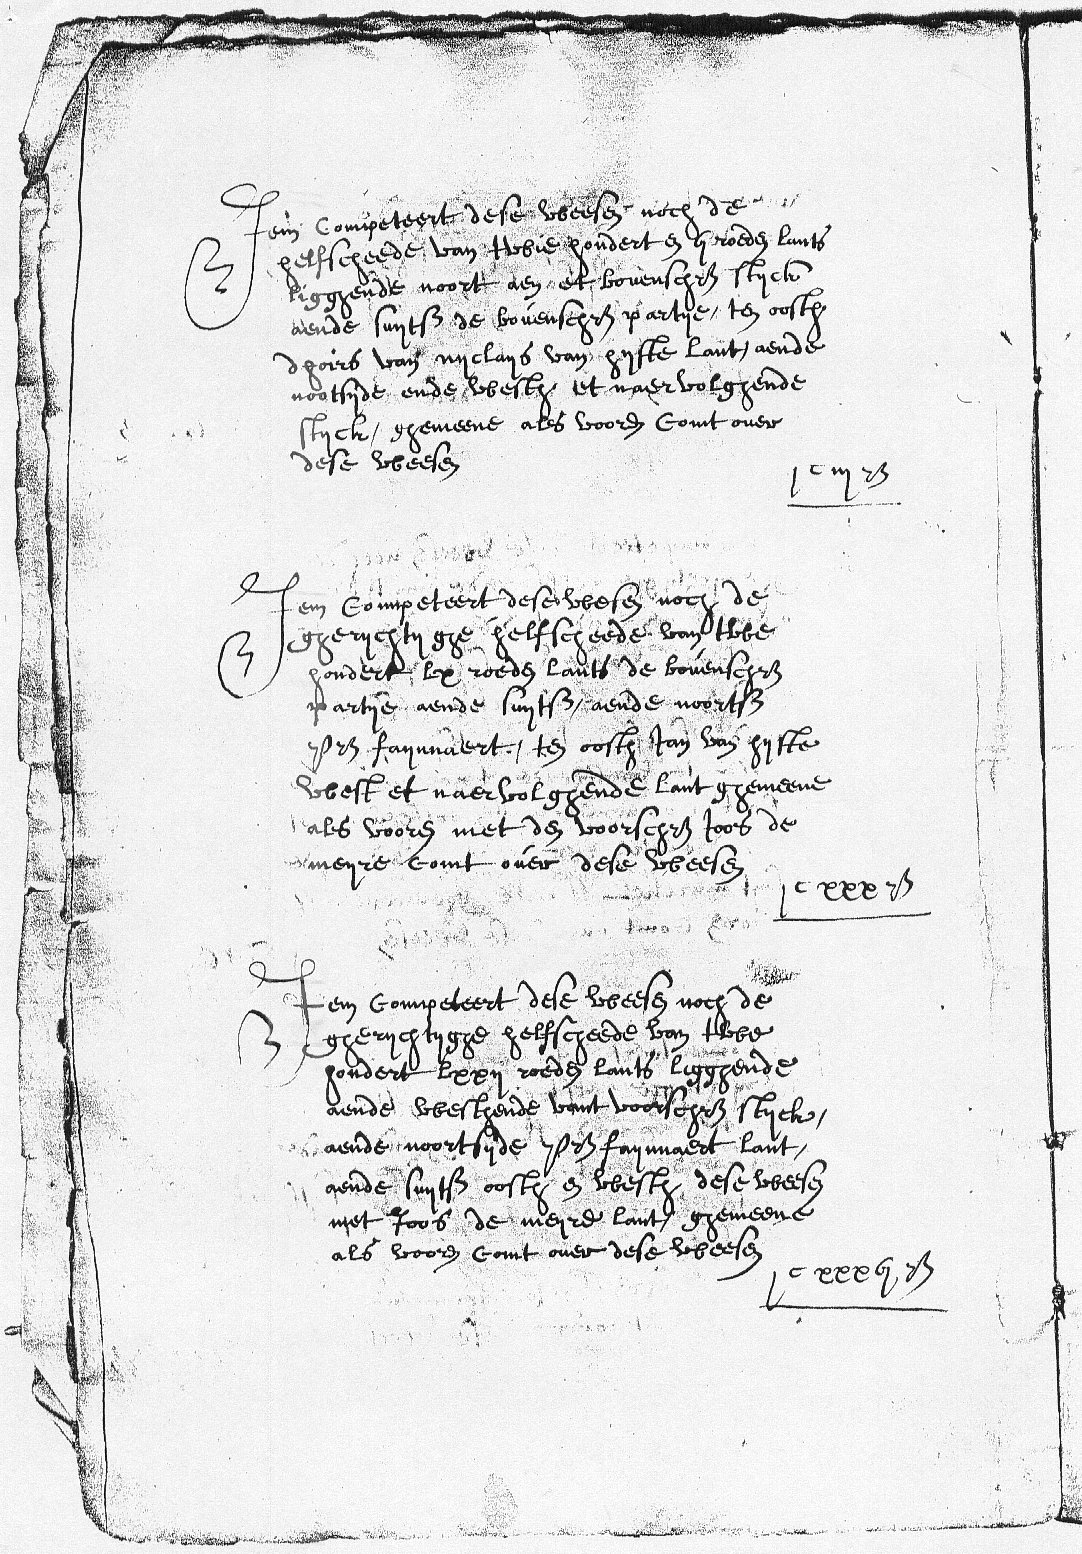 Item Competeert dese weesen noch de
helfscheede van twie hondert en vj roeden lants
ligghende noort aen et bovenschr stick
aende suijtsz de bovenschr partije / ten oosth
dhoirs van nijclaijs van hijfte lant / aende
nootsijde ende westh et naervolghende
stijck / ghemeene als vooren Comt over
dese weesen
jc iij r
Item Competeert dese weesen noch de
gherijchtijghe helfscheede van twe
hondert lx roeden lants de bovenschr
partije aende suijtsz / aende noortsz
Pr faijnnaert / ten oosth Jan van hijfte
west et naervolghende lant ghemeene
als vooren met den voorschr Joos de
meijre Comt over dese weesen
jc xxx r
Item Competeert dese weesen noch de
gherijchtijghe helfscheede van twe
hondert lxxij roeden lants ligghende
aende westhende vant voorschr stijck /
aende noortsijde Pr faijnnaert lant /
aende suijtsz oosth en westh dese weesen
met Joos de meijre lant / ghemeene
als vooren Comt over dese weesen
jc xxxvj r